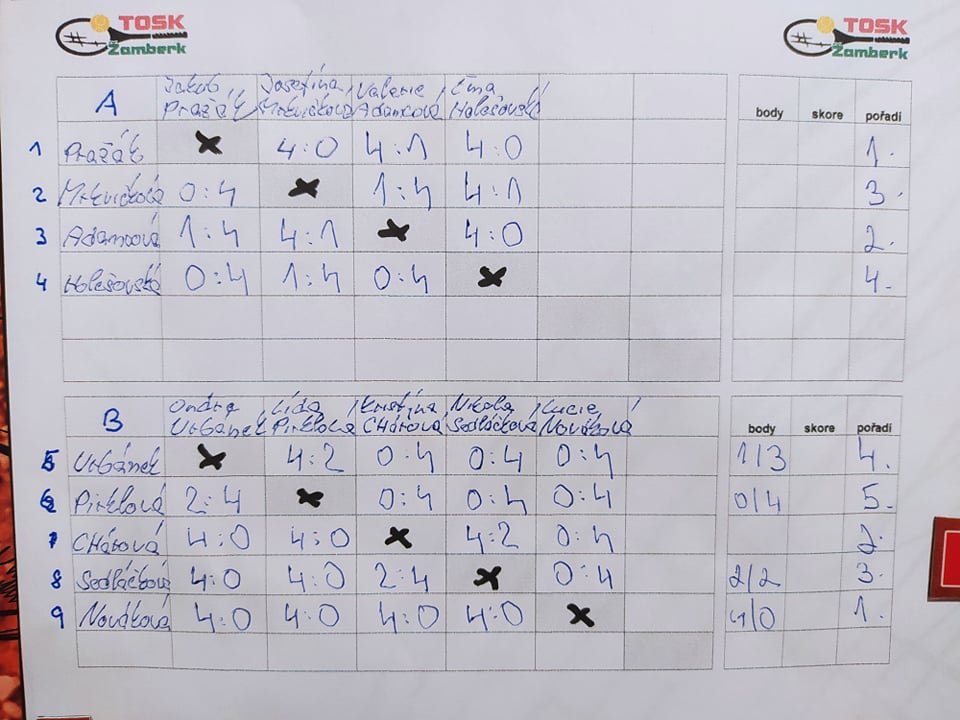 TOSK
Žamberk
TOSK
Žamberk
A Jakub Pražák Josefína Mrkvičková Valerie Adamcová Ema Holešovská body skore pořadí
1 Pražák 4:0 4:1 4:0 1.
2 Mrkvičková 0:4 1:4 4:1 3.
3 Adamcová 1:4 4:1 4:0 2.
4 Holešovská 0:4 1:4 0:4 4.
B Ondra Urbánek Lída Pirklová Kristína CHárová Nikola Sedláčková Lucie Nováková body skore pořadí
5 Urbánek 4:2 0:4 0:4 0:4 1/3 4.
6 Pirklová 2:4 0:4 0:4 0:4 0/4 5.
7 CHárová 4:0 4:0 4:2 0:4 2.
8 Sedláčková 4:0 4:0 2:4 0:4 2/2 3.
9 Nováková 4:0 4:0 4:0 4:0 4/0 1.